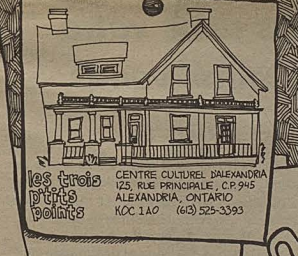 les trois
p'tits
points
CENTRE CULTUREL D'ALEXANDRIA
125, RUE PRINCIPALE, C.P. 945
ALEXANDRIA, ONTARIO
KOC 1A0 (613) 525-3393